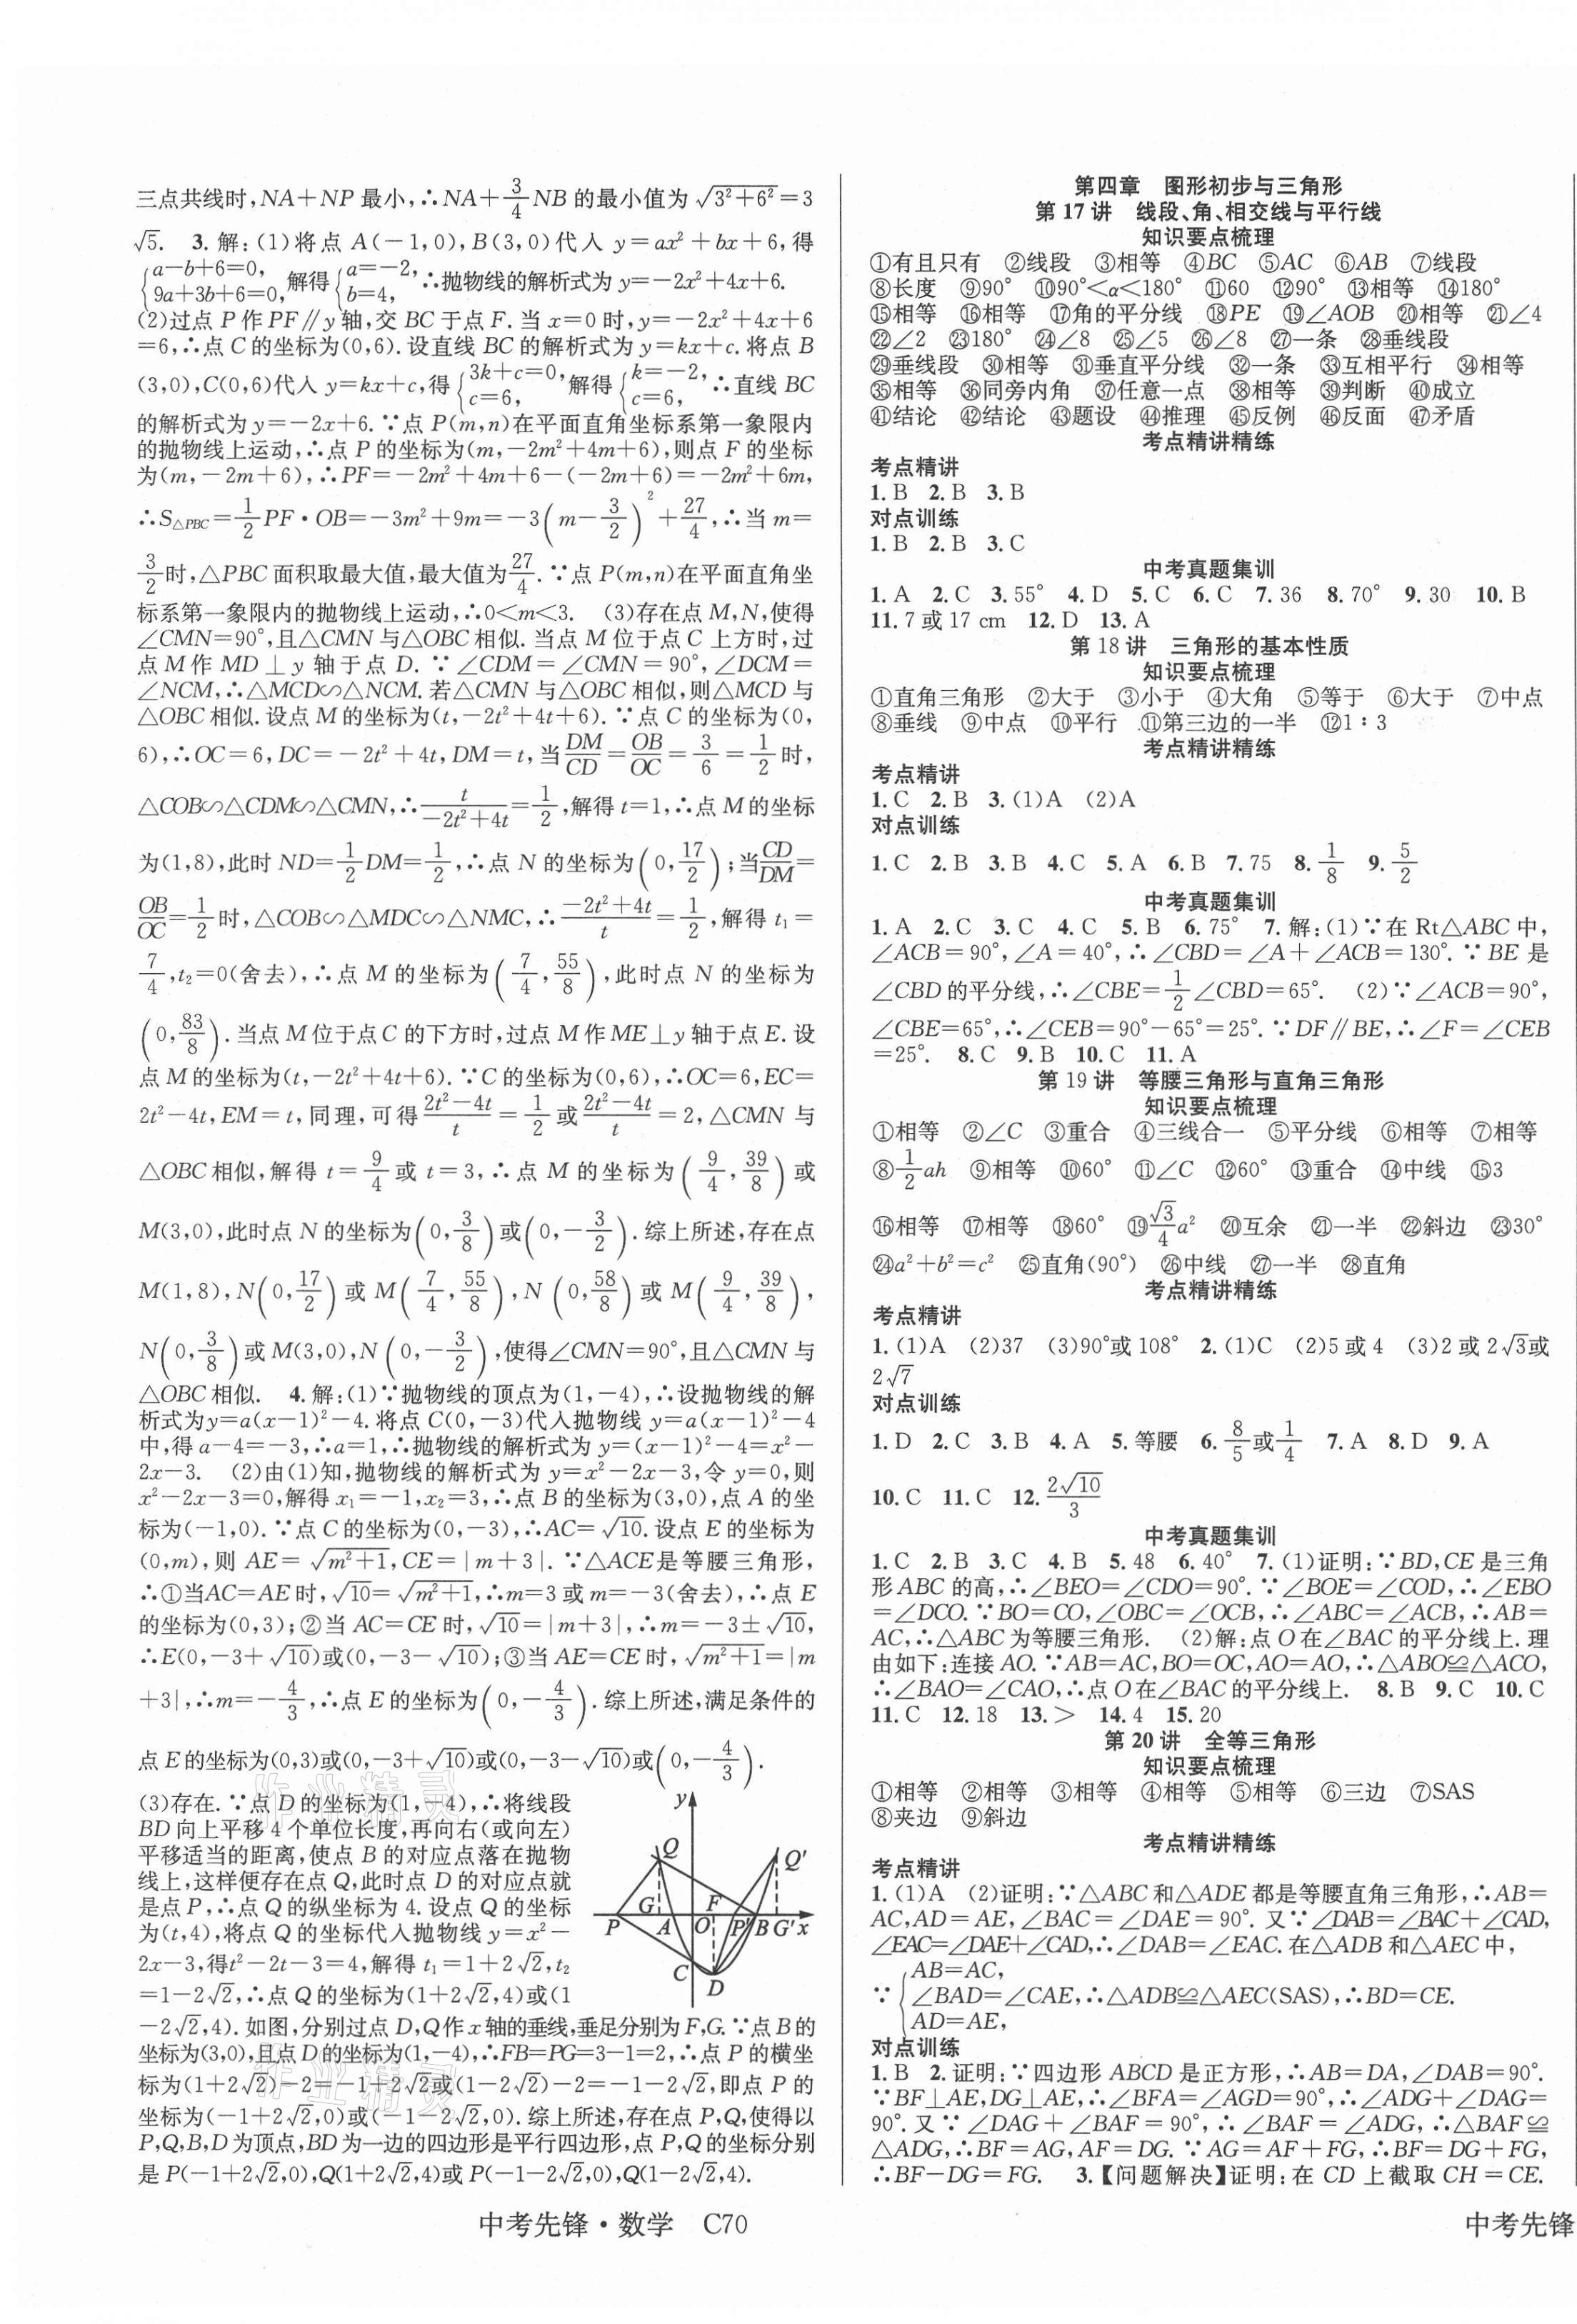 三点共线时,NA+NP 最小,∴NA+3/4NB 的最小值为 √(3²+6²)=3
√5. 3. 解:(1)将点 A(-1,0),B(3,0)代入 y=ax²+bx+6,得
{a-b+6=0, 9a+3b+6=0, 解得{a=-2, b=4, ∴抛物线的解析式为 y=-2x²+4x+6.
(2)过点 P 作 PF∥y 轴,交 BC 于点 F. 当 x=0 时,y=-2x²+4x+6
=6,∴点 C 的坐标为(0,6). 设直线 BC 的解析式为 y=kx+c. 将点 B
(3,0),C(0,6)代入 y=kx+c,得{3k+c=0, c=6, 解得{k=-2, c=6, ∴直线 BC
的解析式为 y=-2x+6. ∵点 P(m,n)在平面直角坐标系第一象限内
的抛物线上运动,∴点 P 的坐标为(m,-2m²+4m+6),则点 F 的坐标
为(m,-2m+6),∴PF=-2m²+4m+6-(-2m+6)=-2m²+6m,
∴S△PBC=1/2PF·OB=-3m²+9m=-3(m-3/2)²+27/4,∴当 m=
3/2时,△PBC 面积取最大值,最大值为27/4. ∵点 P(m,n)在平面直角坐
标系第一象限内的抛物线上运动,∴0<m<3. (3)存在点 M,N,使得
∠CMN=90°,且△CMN 与△OBC 相似. 当点 M 位于点 C 上方时,过
点 M 作 MD⊥y 轴于点 D. ∵∠CDM=∠CMN=90°,∠DCM=
∠NCM,∴△MCD∽△NCM. 若△CMN 与△OBC 相似,则△MCD 与
△OBC 相似. 设点 M 的坐标为(t,-2t²+4t+6). ∵点 C 的坐标为(0,
6),∴OC=6,DC=-2t²+4t,DM=t,当DM/CD=OB/OC=3/6=1/2时,
△COB∽△CDM∽△CMN,∴t/(-2t²+4t)=1/2,解得 t=1,∴点 M 的坐标
为(1,8),此时 ND=1/2DM=1/2,∴点 N 的坐标为(0,17/2);当CD/DM=
OB/OC=1/2时,△COB∽△MDC∽△NMC,∴(-2t²+4t)/t=1/2,解得 t₁=
7/4,t₂=0(舍去),∴点 M 的坐标为(7/4,55/8),此时点 N 的坐标为
(0,83/8). 当点 M 位于点 C 的下方时,过点 M 作 ME⊥y 轴于点 E. 设
点 M 的坐标为(t,-2t²+4t+6). ∵C 的坐标为(0,6),∴OC=6,EC=
2t²-4t,EM=t,同理,可得(2t²-4t)/t=1/2或(2t²-4t)/t=2,△CMN 与
△OBC 相似,解得 t=9/4或 t=3,∴点 M 的坐标为(9/4,39/8)或
M(3,0),此时点 N 的坐标为(0,3/8)或(0,-3/2). 综上所述,存在点
M(1,8),N(0,17/2)或 M(7/4,55/8),N(0,58/8)或 M(9/4,39/8),
N(0,3/8)或 M(3,0),N(0,-3/2),使得∠CMN=90°,且△CMN 与
△OBC 相似. 4. 解:(1)∵抛物线的顶点为(1,-4),∴设抛物线的解
析式为y=a(x-1)²-4. 将点 C(0,-3)代入抛物线 y=a(x-1)²-4
中,得 a-4=-3,∴a=1,∴抛物线的解析式为 y=(x-1)²-4=x²-
2x-3. (2)由(1)知,抛物线的解析式为 y=x²-2x-3,令 y=0,则
x²-2x-3=0,解得 x₁=-1,x₂=3,∴点 B 的坐标为(3,0),点 A 的坐
标为(-1,0). ∵点 C 的坐标为(0,-3),∴AC=√10. 设点 E 的坐标为
(0,m),则 AE=√(m²+1),CE=|m+3|. ∵△ACE是等腰三角形,
∴①当AC=AE 时,√10=√(m²+1),∴m=3 或 m=-3(舍去),∴点 E
的坐标为(0,3);②当 AC=CE 时,√10=|m+3|,∴m=-3±√10,
∴E(0,-3+√10)或(0,-3-√10);③当 AE=CE 时,√(m²+1)=|m
+3|,∴m=-4/3,∴点 E 的坐标为(0,-4/3). 综上所述,满足条件的
点 E 的坐标为(0,3)或(0,-3+√10)或(0,-3-√10)或(0,-4/3).
(3)存在. ∵点 D 的坐标为(1,-4),∴将线段
BD 向上平移 4 个单位长度,再向右(或向左)
平移适当的距离,使点 B 的对应点落在抛物
线上,这样便存在点 Q,此时点 D 的对应点就
是点 P,∴点 Q 的纵坐标为 4. 设点 Q 的坐标
为(t,4),将点 Q 的坐标代入抛物线 y=x²-
2x-3,得t²-2t-3=4,解得 t₁=1+2√2,t₂
=1-2√2,∴点 Q 的坐标为(1+2√2,4)或(1
-2√2,4). 如图,分别过点 D,Q作 x 轴的垂线,垂足分别为 F,G. ∵点 B 的
坐标为(3,0),且点 D 的坐标为(1,-4),∴FB=PG=3-1=2,∴点 P 的横坐
标为(1+2√2)-2=-1+2√2或(1-2√2)-2=-1-2√2,即点 P 的
坐标为(-1+2√2,0)或(-1-2√2,0). 综上所述,存在点 P,Q,使得以
P,Q,B,D 为顶点,BD 为一边的四边形是平行四边形,点 P,Q 的坐标分别
是 P(-1+2√2,0),Q(1+2√2,4)或 P(-1-2√2,0),Q(1-2√2,4).
y
Q
Q′
G
F
P A O P′ B G′ x
C
D
作业精灵
作业精灵
中考先锋·数学 C70
第四章 图形初步与三角形
第 17 讲 线段、角、相交线与平行线
知识要点梳理
①有且只有 ②线段 ③相等 ④BC ⑤AC ⑥AB ⑦线段
⑧长度 ⑨90° ⑩90°<α<180° ⑪60 ⑫90° ⑬相等 ⑭180°
⑮相等 ⑯相等 ⑰角的平分线 ⑱PE ⑲∠AOB ⑳相等 ㉑∠4
㉒∠2 ㉓180° ㉔∠8 ㉕∠5 ㉖∠8 ㉗一条 ㉘垂线段
㉙垂线段 ㉚相等 ㉛垂直平分线 ㉜一条 ㉝互相平行 ㉞相等
㉟相等 ㊱同旁内角 ㊲任意一点 ㊳相等 ㊴判断 ㊵成立
㊶结论 ㊷结论 ㊸题设 ㊹推理 ㊺反例 ㊻反面 ㊼矛盾
考点精讲精练
考点精讲
1. B 2. B 3. B
对点训练
1. B 2. B 3. C
中考真题集训
1. A 2. C 3. 55° 4. D 5. C 6. C 7. 36 8. 70° 9. 30 10. B
11. 7 或 17 cm 12. D 13. A
第 18 讲 三角形的基本性质
知识要点梳理
①直角三角形 ②大于 ③小于 ④大角 ⑤等于 ⑥大于 ⑦中点
⑧垂线 ⑨中点 ⑩平行 ⑪第三边的一半 ⑫1∶3
考点精讲精练
考点精讲
1. C 2. B 3. (1)A (2)A
对点训练
1. C 2. B 3. B 4. C 5. A 6. B 7. 75 8. 1/8 9. 5/2
中考真题集训
1. A 2. C 3. C 4. C 5. B 6. 75° 7. 解:(1)∵在 Rt△ABC 中,
∠ACB=90°,∠A=40°,∴∠CBD=∠A+∠ACB=130°. ∵BE 是
∠CBD 的平分线,∴∠CBE=1/2∠CBD=65°. (2)∵∠ACB=90°,
∠CBE=65°,∴∠CEB=90°-65°=25°. ∵DF∥BE,∴∠F=∠CEB
=25°. 8. C 9. B 10. C 11. A
第 19 讲 等腰三角形与直角三角形
知识要点梳理
①相等 ②∠C ③重合 ④三线合一 ⑤平分线 ⑥相等 ⑦相等
⑧1/2ah ⑨相等 ⑩60° ⑪∠C ⑫60° ⑬重合 ⑭中线 ⑮3
⑯相等 ⑰相等 ⑱60° ⑲√3/4a² ⑳互余 ㉑一半 ㉒斜边 ㉓30°
㉔a²+b²=c² ㉕直角(90°) ㉖中线 ㉗一半 ㉘直角
考点精讲精练
考点精讲
1. (1)A (2)37 (3)90°或 108° 2. (1)C (2)5 或 4 (3)2 或 2√3或
2√7
对点训练
1. D 2. C 3. B 4. A 5. 等腰 6. 8/5或1/4 7. A 8. D 9. A
10. C 11. C 12. 2√10/3
中考真题集训
1. C 2. B 3. C 4. B 5. 48 6. 40° 7. (1)证明:∵BD,CE 是三角
形 ABC 的高,∴∠BEO=∠CDO=90°. ∵∠BOE=∠COD,∴∠EBO
=∠DCO. ∵BO=CO,∠OBC=∠OCB,∴∠ABC=∠ACB,∴AB=
AC,∴△ABC 为等腰三角形. (2)解:点 O 在∠BAC 的平分线上. 理
由如下:连接 AO. ∵AB=AC,BO=OC,AO=AO,∴△ABO≌△ACO,
∴∠BAO=∠CAO,∴点 O 在∠BAC 的平分线上. 8. B 9. C 10. C
11. C 12. 18 13. > 14. 4 15. 20
第 20 讲 全等三角形
知识要点梳理
①相等 ②相等 ③相等 ④相等 ⑤相等 ⑥三边 ⑦SAS
⑧夹边 ⑨斜边
考点精讲精练
考点精讲
1. (1)A (2)证明:∵△ABC 和△ADE 都是等腰直角三角形,∴AB=
AC,AD=AE,∠BAC=∠DAE=90°. 又∵∠DAB=∠BAC+∠CAD,
∠EAC=∠DAE+∠CAD,∴∠DAB=∠EAC. 在△ADB 和△AEC 中,
AB=AC,
∵{∠BAD=∠CAE,∴△ADB≌△AEC(SAS),∴BD=CE.
AD=AE,
对点训练
1. B 2. 证明:∵四边形 ABCD 是正方形,∴AB=DA,∠DAB=90°.
∵BF⊥AE,DG⊥AE,∴∠BFA=∠AGD=90°,∴∠ADG+∠DAG=
90°. 又∵∠DAG+∠BAF=90°,∴∠BAF=∠ADG,∴△BAF≌
△ADG,∴BF=AG,AF=DG. ∵AG=AF+FG,∴BF=DG+FG,
∴BF-DG=FG. 3. 【问题解决】证明:在 CD 上截取 CH=CE.
中考先锋